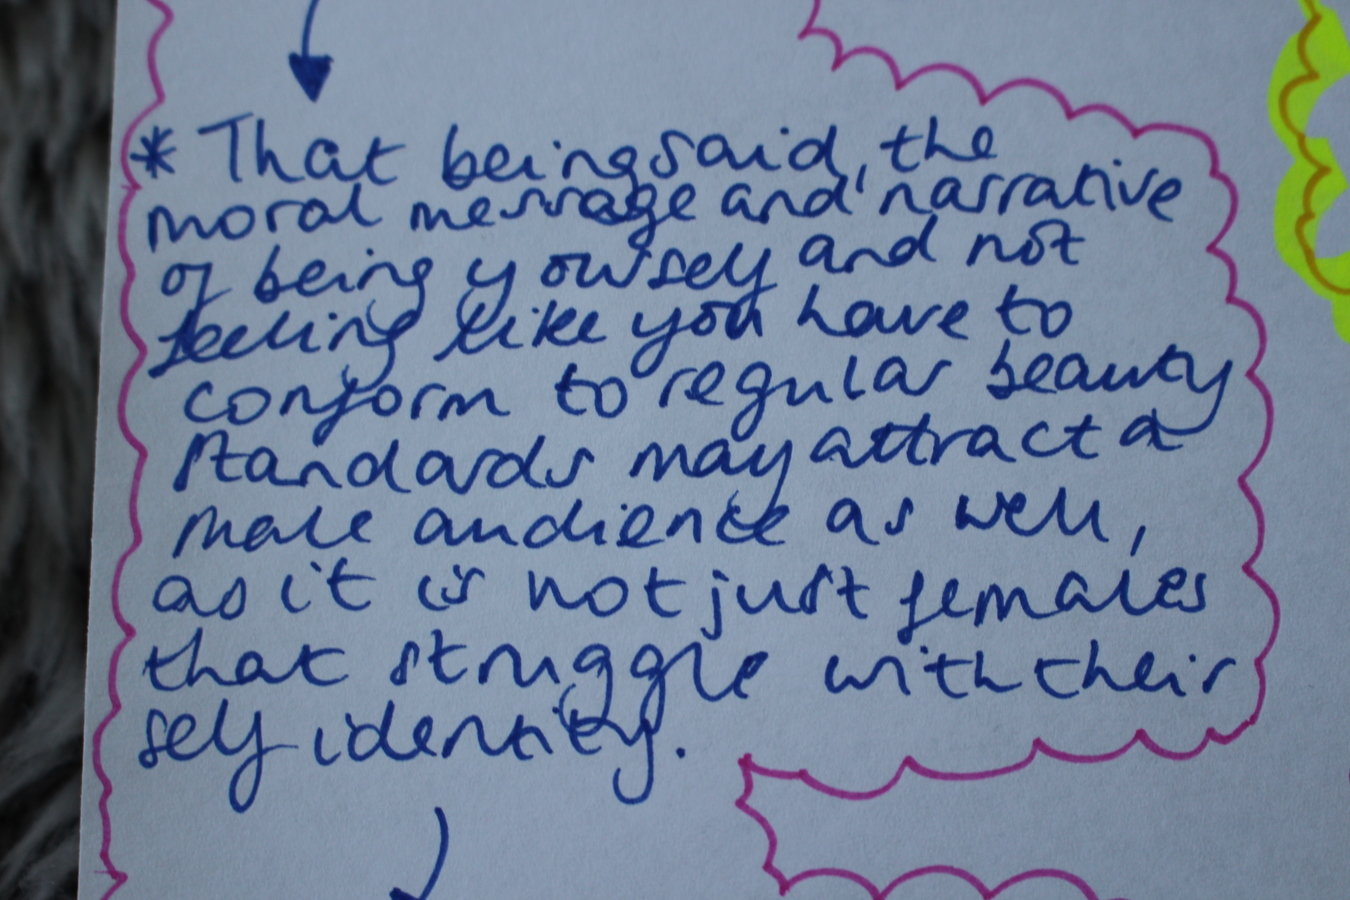 * That being said, the
moral message and narrative
of being yourself and not
feeling like you have to
conform to regular beauty
standards may attract a
male audience as well,
as it is not just females
that struggle with their
self identity.